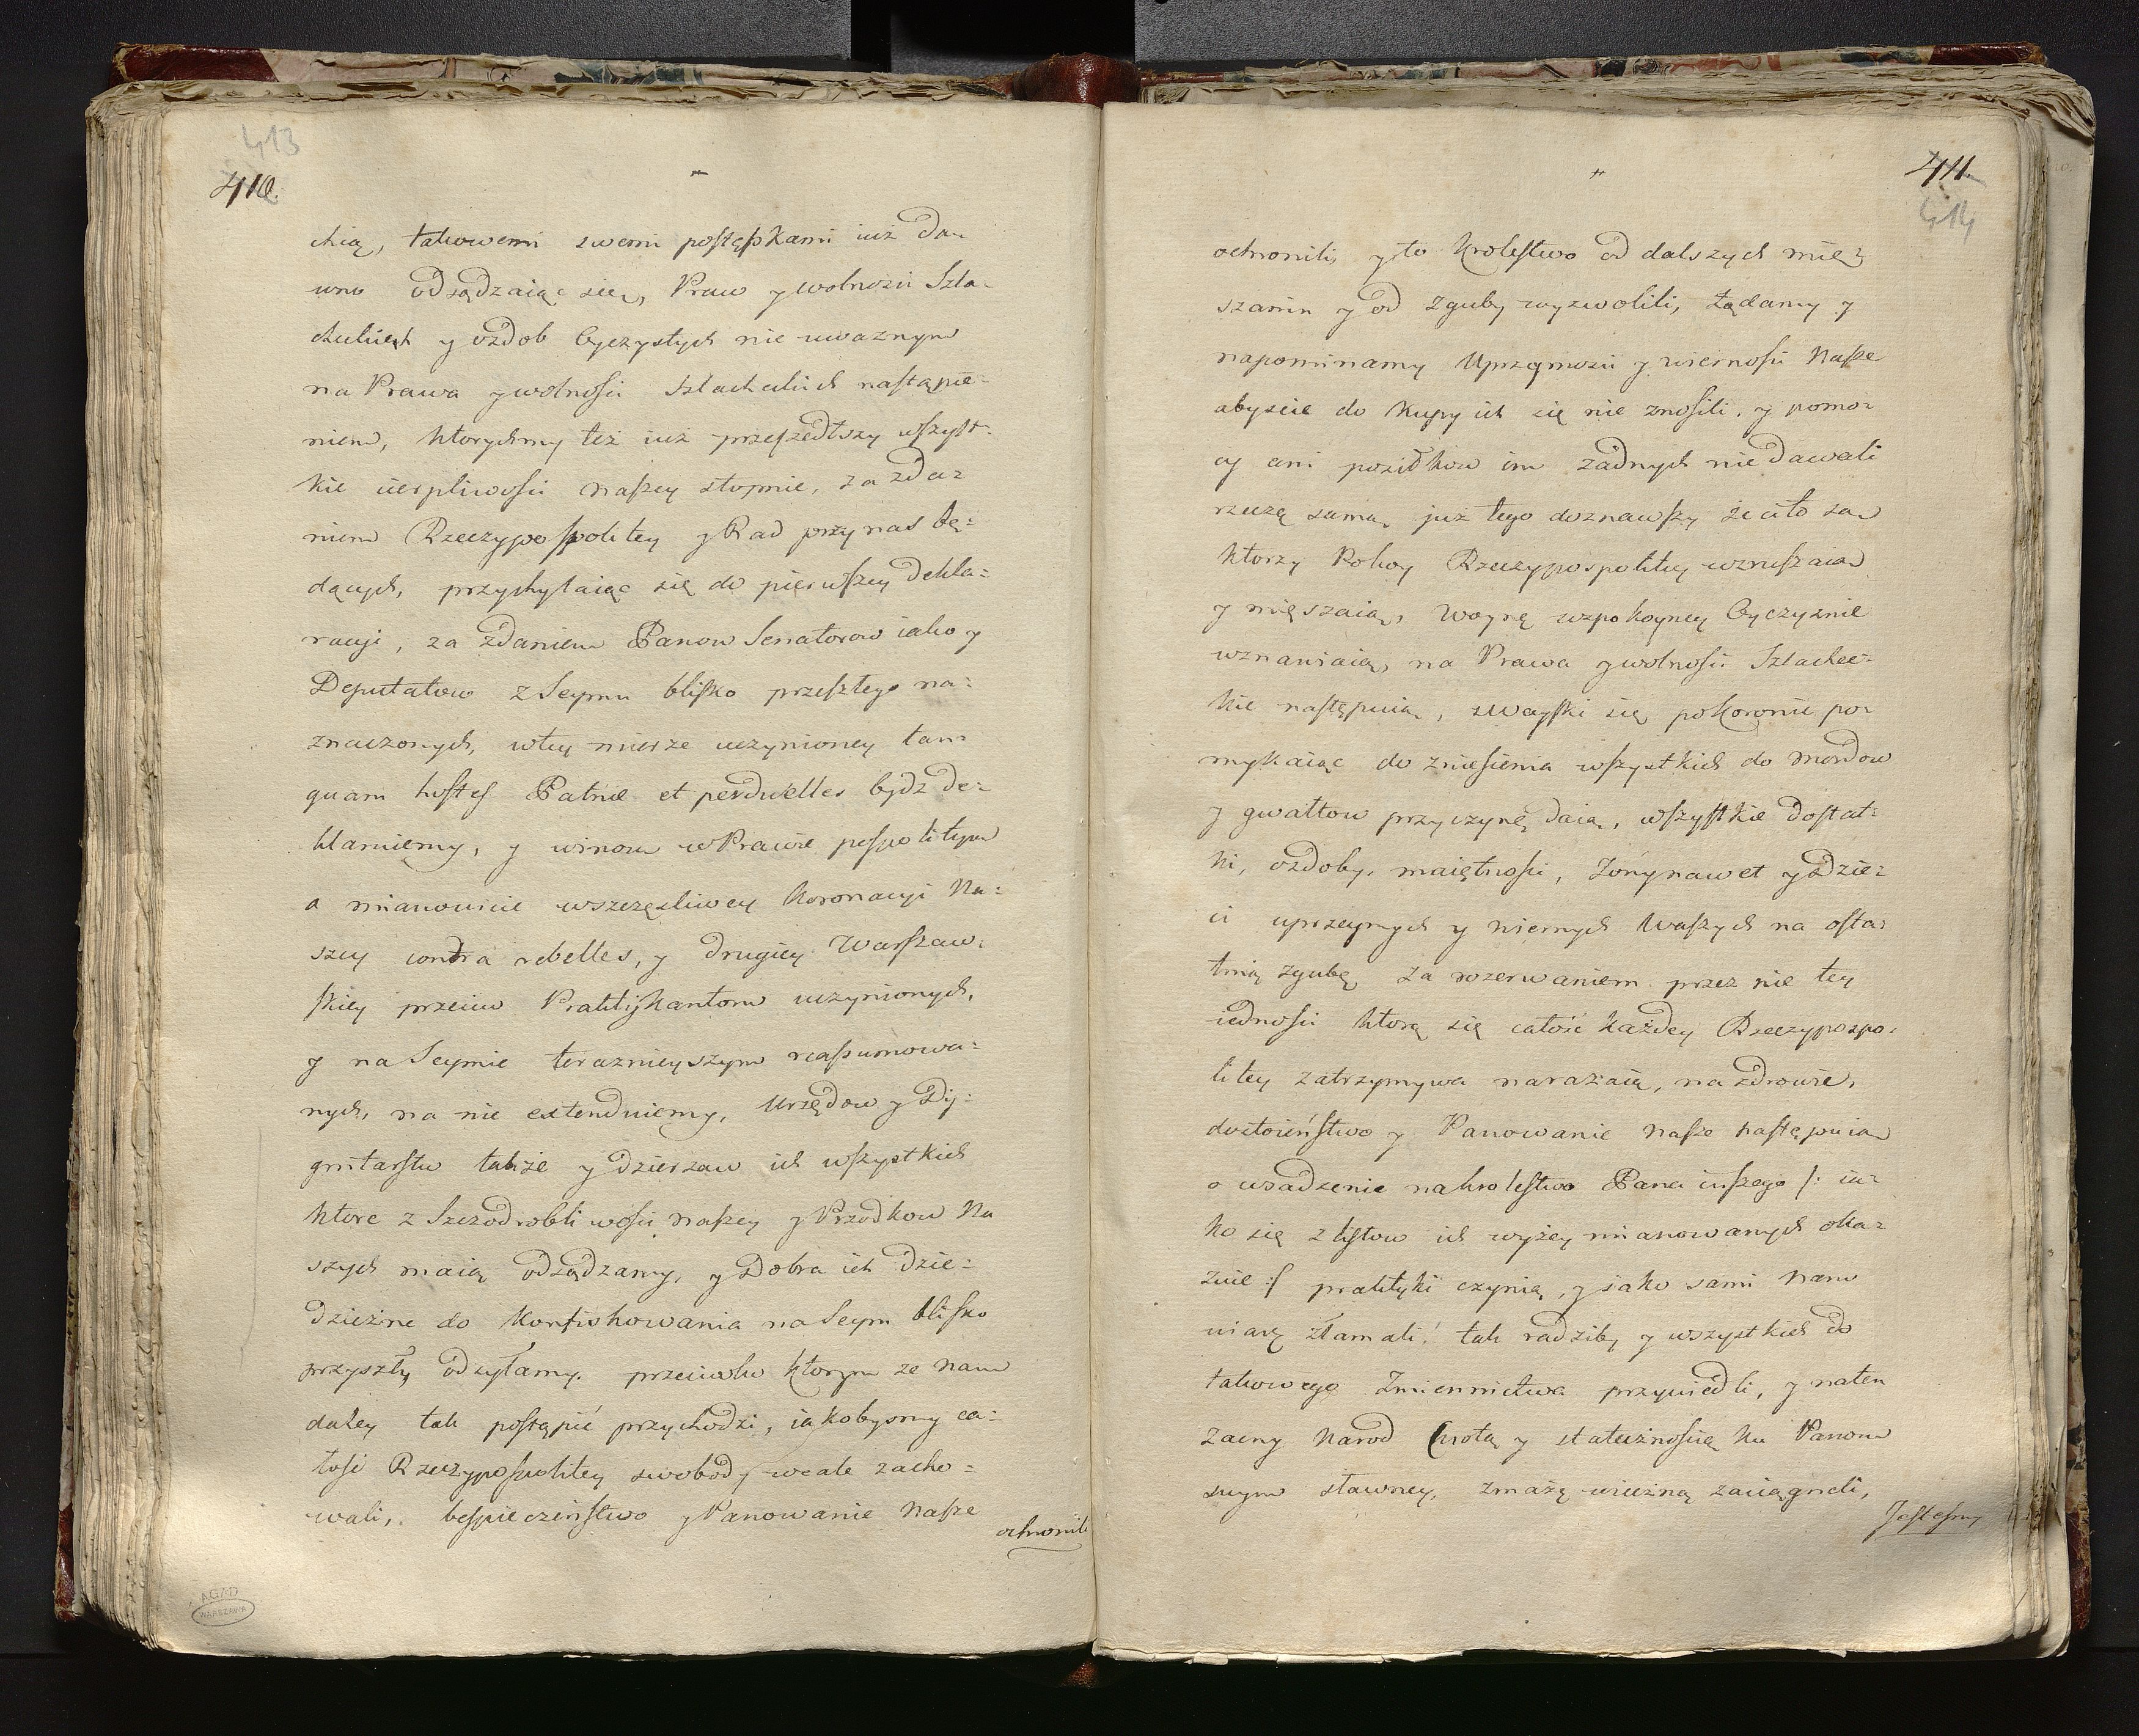 413
410.
chią, takowemi swemi postępkami iuż da=
wno odsądzaiąc się, Praw y wolności Szla=
checkich y ozdob Oyczystych nie uważnym
na Prawa y wolności Szlacheckich nastąpie=
niem, ktorychmy też iuż przeszedłszy wszyst=
kie cierpliwości naszey stopnie, za zda=
niem Rzeczypospolitey y Rad przy nas bę=
dących, przychylaiąc się do pierwszey dekla=
racyi, za zdaniem Panow Senatorow iako y
Deputatow z Seymu blisko przeszłego na=
znaczonych, w tey mierze uczynioney tan=
quam hostes Patriæ et perduelles bydz de=
klaruiemy, y winom w Prawie pospolitym
a mianowicie w szczęsliwey Koronacyi Na=
szey contra rebelles, y drugiey Warszaw=
skiey przeciw Praktykantom uczynionych,
y na Seymie teraznieyszym reassumowa=
nych, na nie extenduiemy, Urzędow y Dy=
gnitarstw także y dzierzaw ich wszystkich
ktore z Szczodrobliwości naszey y Przodkow Na
szych maią odsądzamy, y Dobra ich dzie=
dziczne do konfiskowania na Seym blisko
przyszły odsyłamy. przeciwko ktorym ze nam
daley tak postąpić przychodzi, iakobysmy ca=
łość Rzeczypospolitey swobody wcale zacho=
wali, bespieczeństwo y Panowanie Nasze
ochronili
AGAD
WARSZAWA
411.
414
ochronili, y to Krolestwo od dalszych mię=
szanin y od zguby wyzwolili, żądamy y
napominamy Uprzeymości y wierności Nasze
abyscie do kupy ich się nie znosili, y pomo=
cy ani posiłkow im żadnych nie dawali
rzeczą samą już tego doznawszy że ci to są
ktorzy Pokoy Rzeczypospolitey wzruszaią
y mięszaią, Woynę w spokoyney Oyczyznie
wznawiaią, na Prawa y wolności Szlachec=
kie następuią, z Woyski się po Koronie po=
mykaiąc do zniesienia wszystkich do mordow
y gwałtow przyczynę daią, wszystkie dostat=
ki, ozdoby, maiętności, Żony nawet y Dzie=
ci uprzeymych y wiernych Waszych na osta=
tnią zgubę za rozerwaniem przez nie tey
iedności ktorą się całość każdey Rzeczypospo=
litey zatrzymywa narażaią, na zdrowie,
dostoieństwo y Panowanie Nasze następuią
o wsadzenie na krolestwo Pana inszego /: ia=
ko się z listow ich wyżey mianowanych oka=
zuie :/ praktyki czynią, y iako sami Nam
wiarę złamali, tak radziby y wszystkich do
takowego Zmiennictwa przywiedli, y na ten
zacny Narod Cnotą y statecznością ku Panom
swym sławney, zmazę wieczną zaciągneli,
Jestesmy